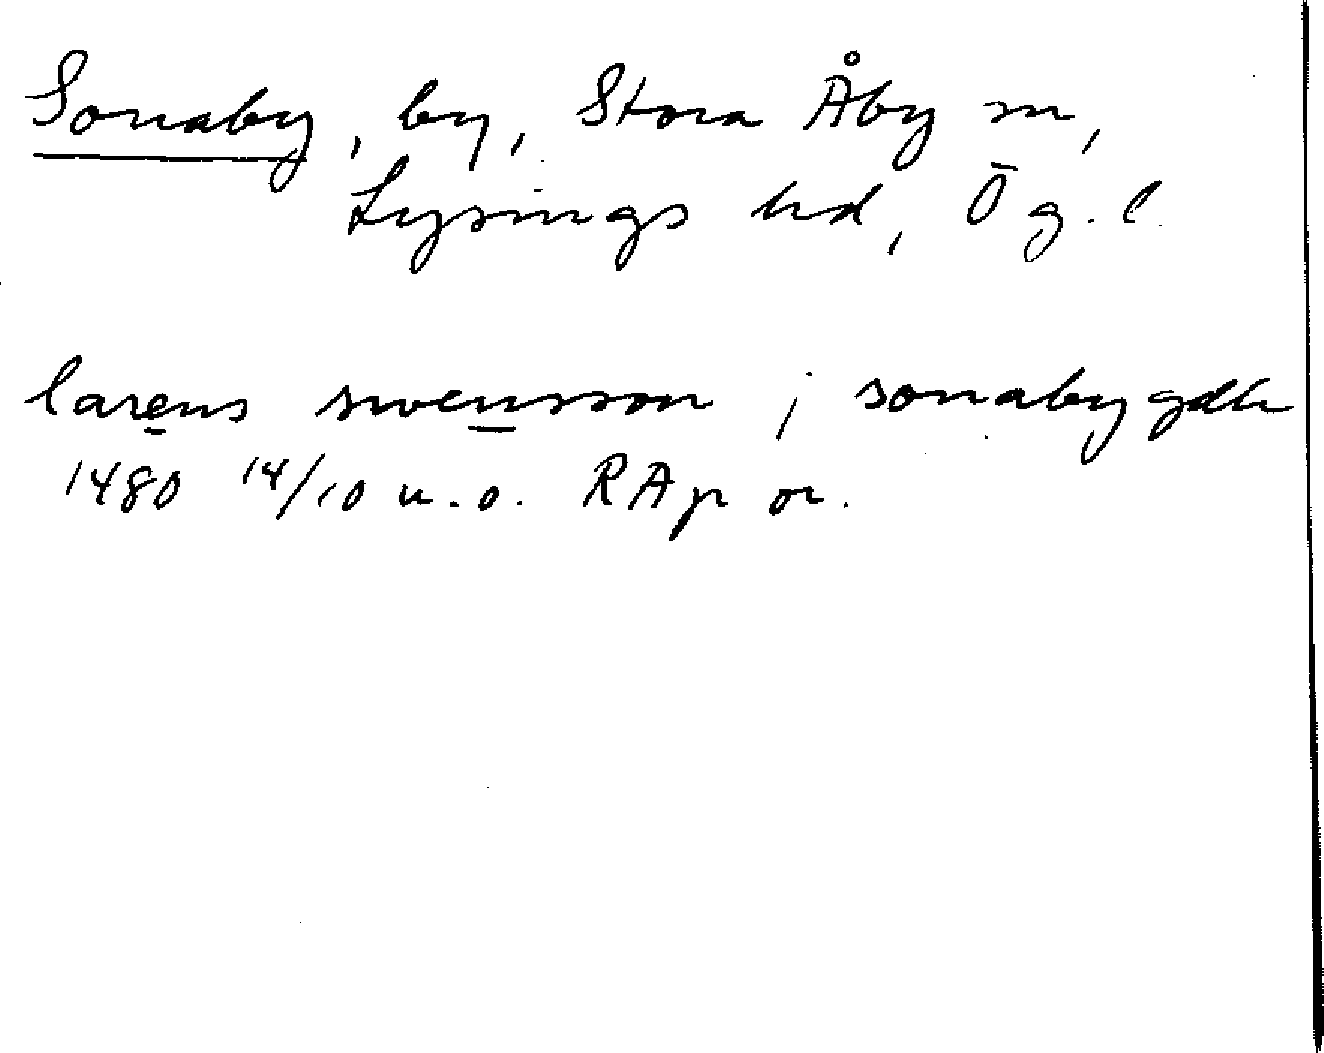 Sonaby, by, Stora Åby sn,
Lysings hd, Ög. l.
larens swensson i sonabygdh
1480 14/10 u.o. RAp or.